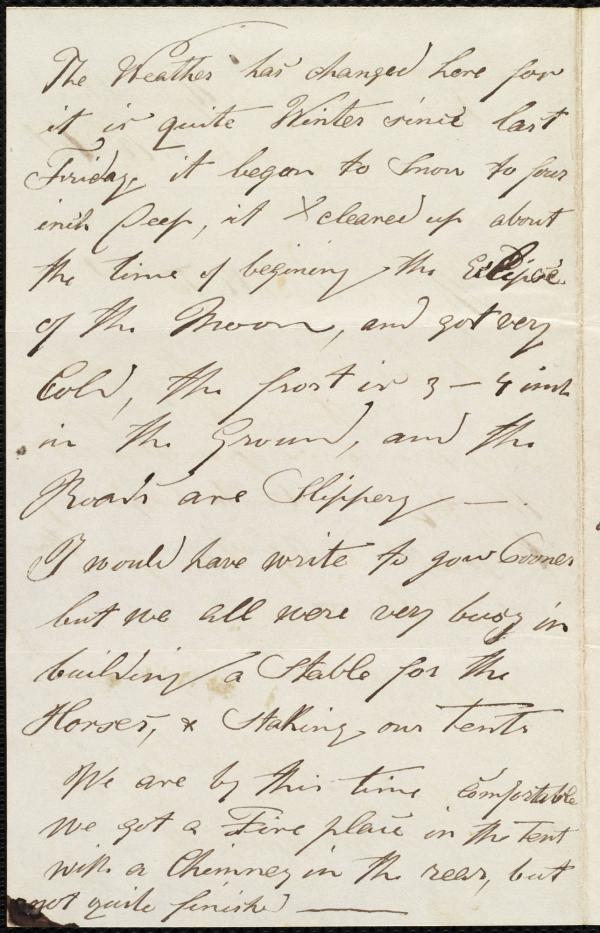 The Weather has changed here for
it is quite Winter since last
Friday, it began to Snow to four
inch Deep, it cleared up about
the time of begining the Eclipse
of the Moon, and got very
Cold, the frost is 3 – 4 inch
in the Ground, and the
Roads are Slippery —.
I would have write to you Sooner
but we all were very busy in
building a Stable for the
Horses, & Staking our Tents
We are by this time comfortable
we got a Fire place in the Tent
with a Chimney in the rear, but
not quite finished —